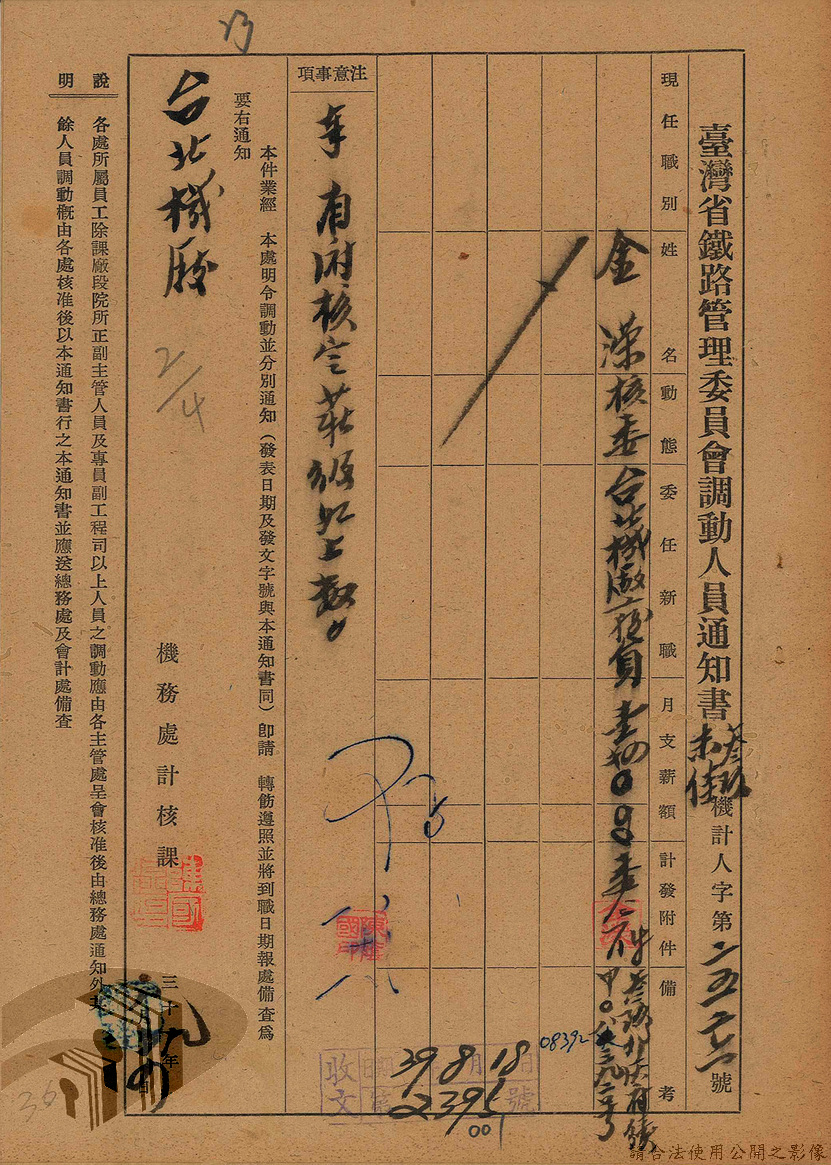 臺灣省鐵路管理委員會調動人員通知書
機計人字第二五二六號
現任職別
姓名
動態
委任新職
月支薪額
計發附件
備考
金濼
核委
台北機廠
員
注意事項
奉省府核定薪級如上數
本件業經 本處明令調動並分別通知（發表日期及發文字號與本通知書同）卽請 轉飭遵照並將到職日期報處備查爲
要右通知
台北機廠
2/4
機務處計核課
三十九年
說明
各處所屬員工除課廠段院所正副主管人員及專員副工程司以上人員之調動應由各主管處呈會核准後由總務處通知外其
餘人員調動槪由各處核准後以本通知書行之本通知書並應送總務處及會計處備查
收文
39 8月18日
2395號
001
08392
36
請合法使用公開之影像